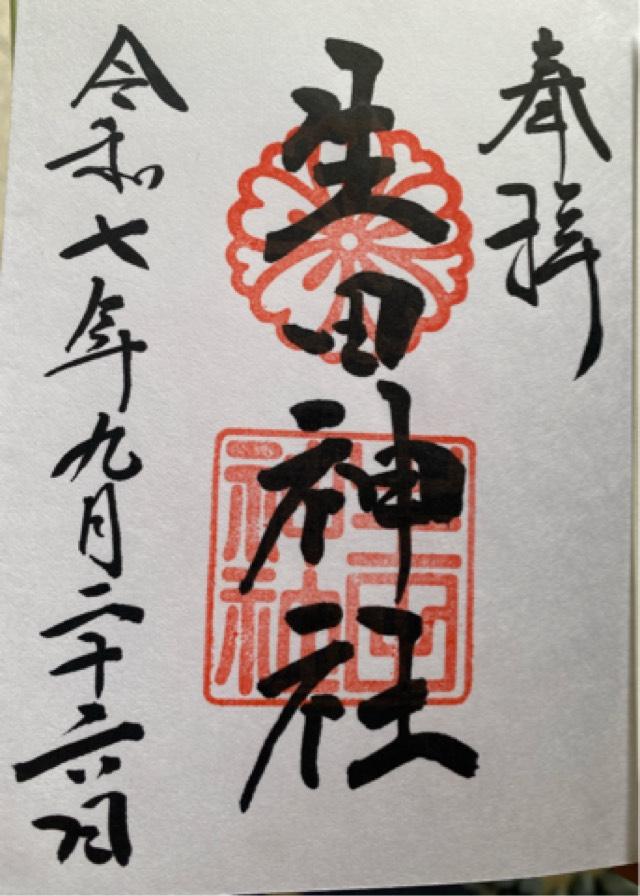 奉拝
生田神社
令和七年九月二十六日
生田
神社